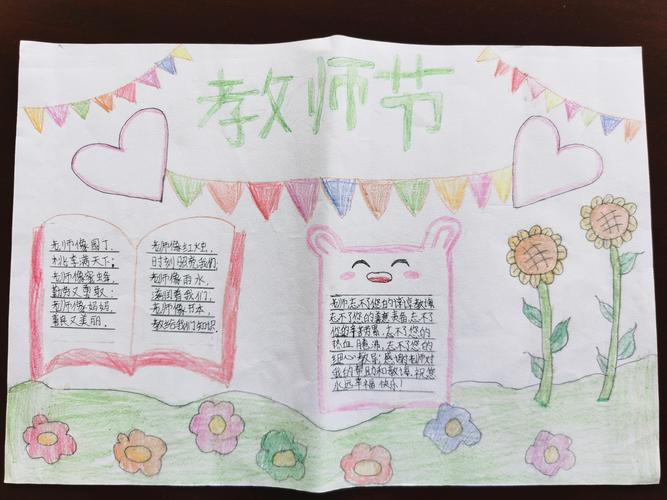 教师节
老师像园丁,
桃李满天下;
老师像蜜蜂,
勤劳又勇敢;
老师像妈妈,
善良又美丽.
老师像红烛,
时刻照亮我们,
老师像雨水,
滋润着我们,
老师像书本,
教给我们知识.
老师忘不了您的谆谆教悔
忘不了您的 忘不了
你的辛苦劳累,忘不了您的
热血 忘不了您的
细心教导;感谢老师对
我的帮助和教诲,祝您
永远幸福快乐!